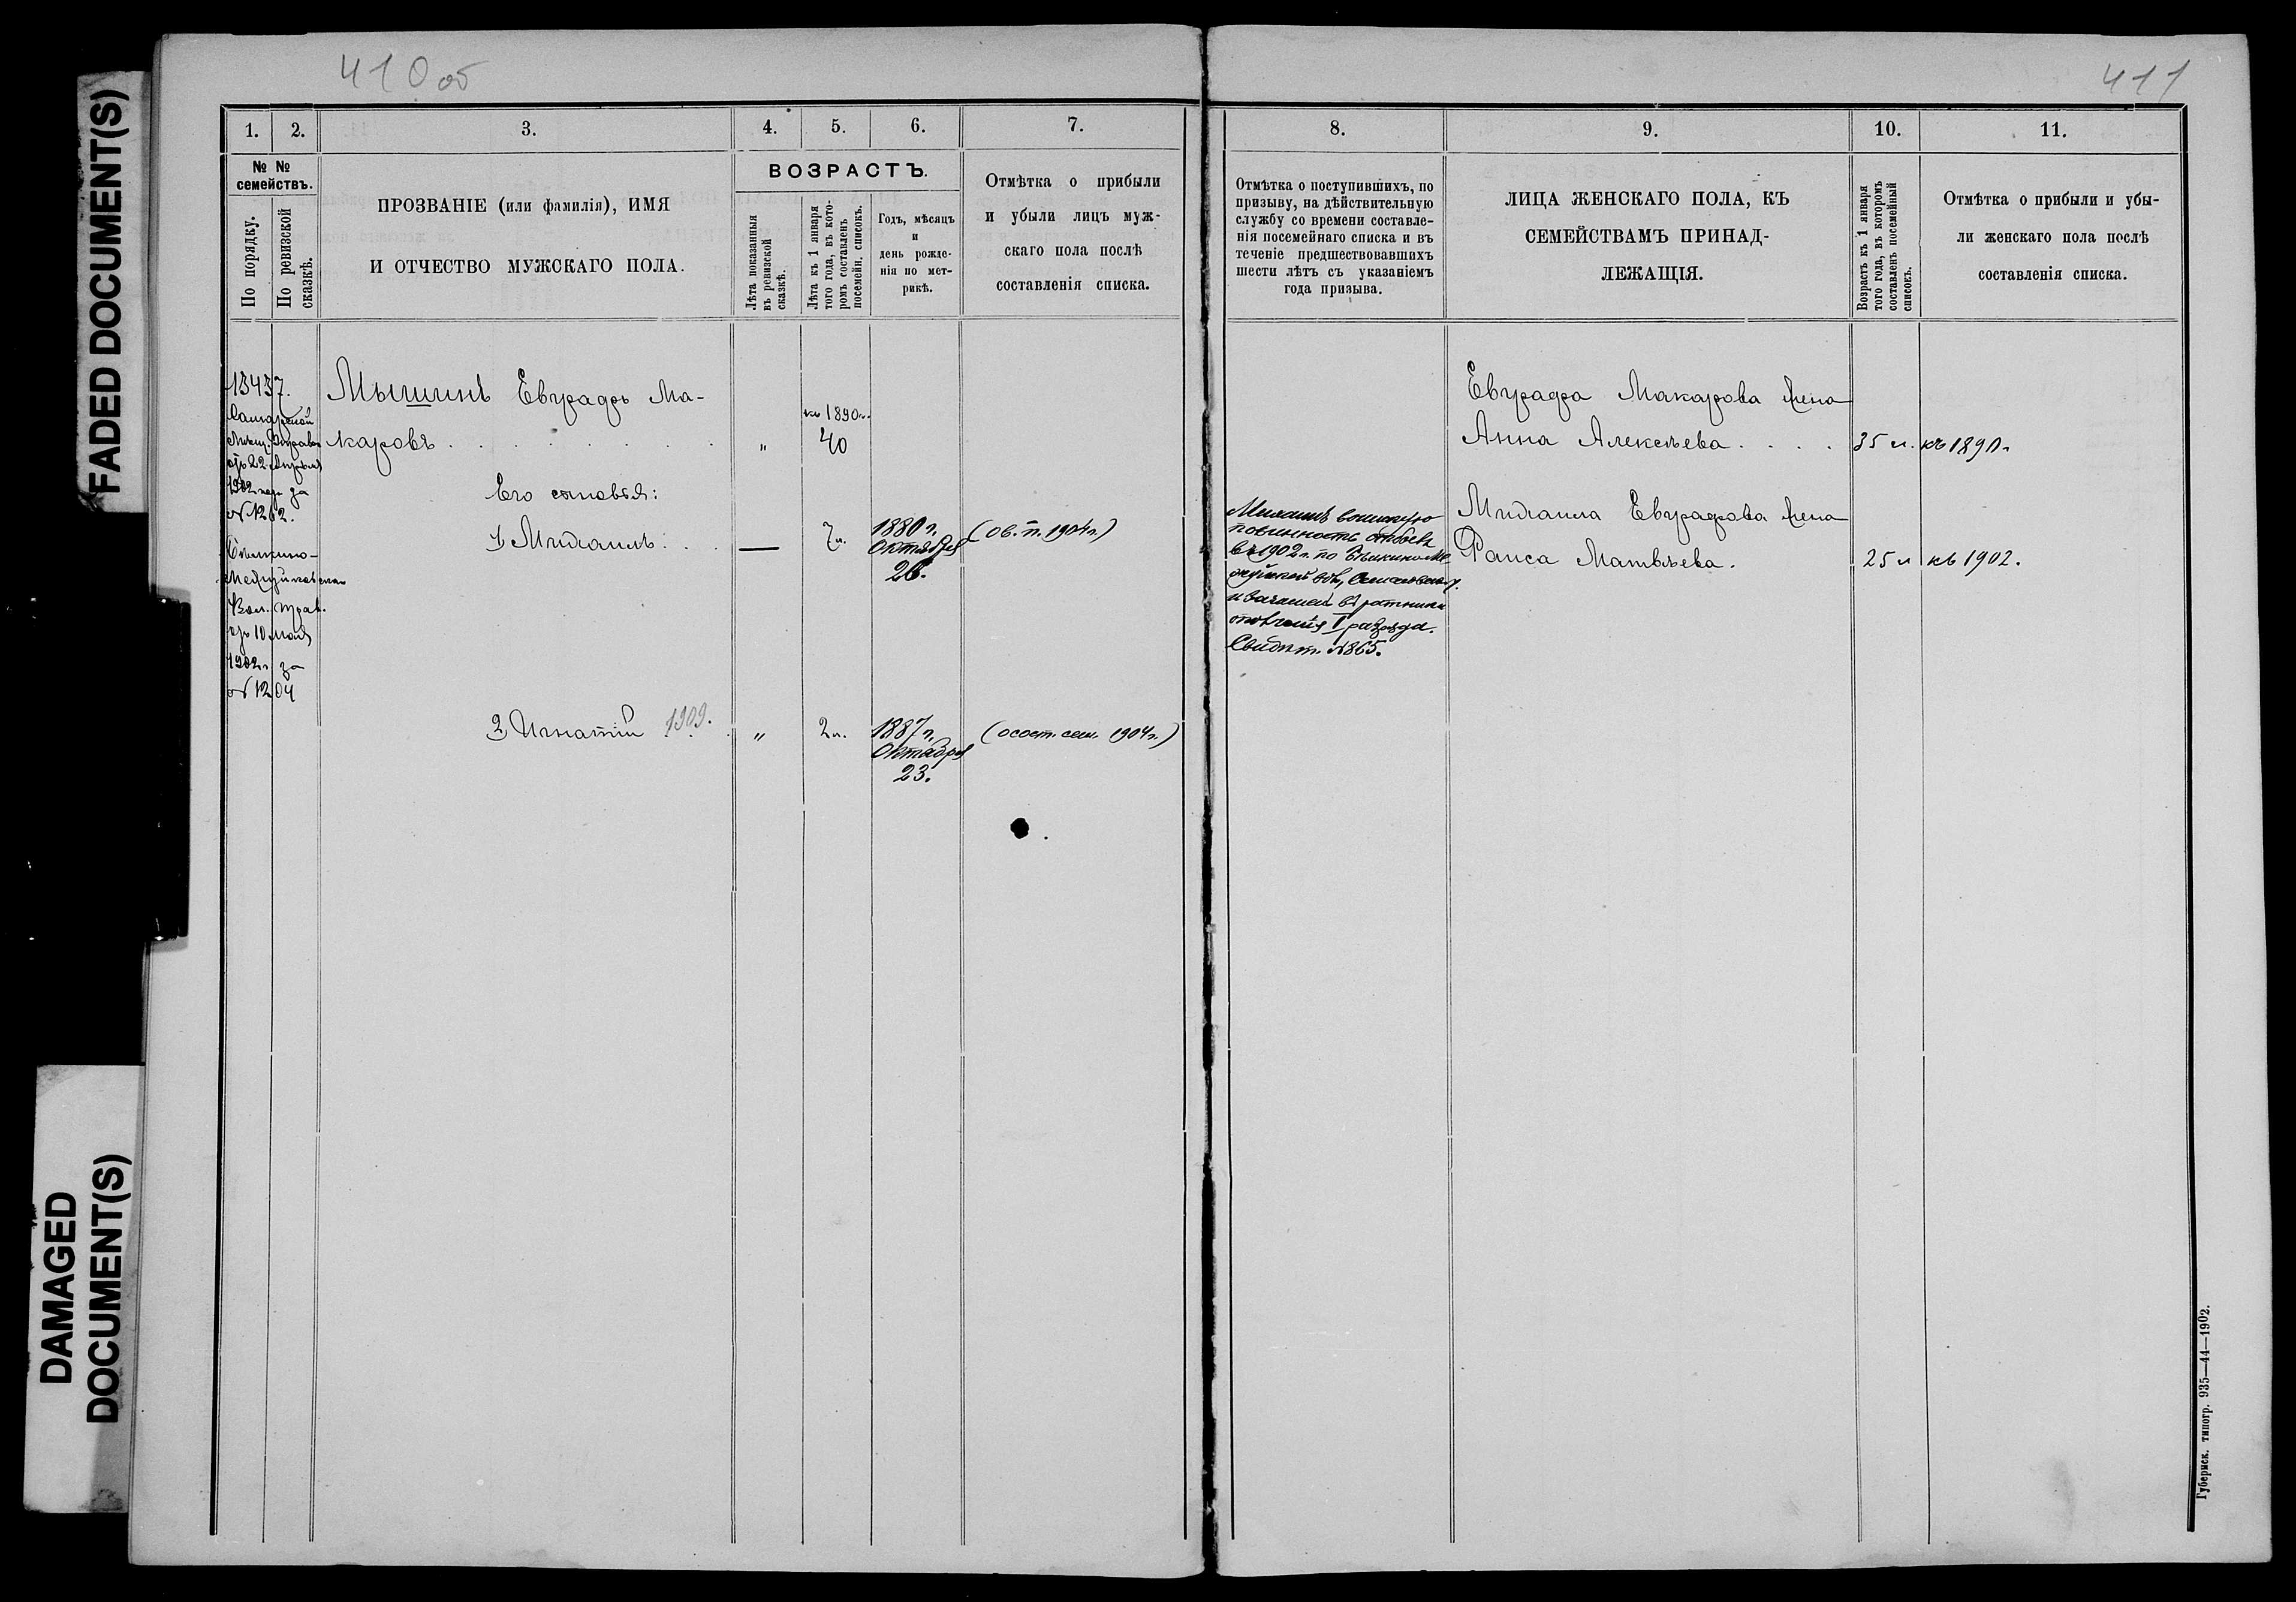 FADED DOCUMENT(S)
DAMAGED
DOCUMENT(S)
410об
411
1.
2.
3.
4.
5.
6.
7.
8.
9.
10.
11.
№ №
семействъ.
По порядку.
По ревизской
сказкѣ.
ПРОЗВАНІЕ (или фамилія), ИМЯ
И ОТЧЕСТВО МУЖСКАГО ПОЛА.
ВОЗРАСТЪ.
Лѣта показанныя
въ ревизской
сказкѣ.
Лѣта къ 1 января
того года, въ кото-
ромъ составленъ
посемейн. списокъ.
Годъ, мѣсяцъ
и
день рожде-
нія по мет-
рикѣ.
Отмѣтка о прибыли
и убыли лицъ муж-
скаго пола послѣ
составленія списка.
Отмѣтка о поступившихъ, по
призыву, на дѣйствительную
службу со времени составле-
нія посемейнаго списка и въ
теченіе предшествовавшихъ
шести лѣтъ съ указаніемъ
года призыва.
ЛИЦА ЖЕНСКАГО ПОЛА, КЪ
СЕМЕЙСТВАМЪ ПРИНАД-
ЛЕЖАЩІЯ.
Возрастъ къ 1 января
того года, въ которомъ
составленъ посемейный
списокъ.
Отмѣтка о прибыли и убы-
ли женскаго пола послѣ
составленія списка.
13437.
Самарской
Мѣщ. Управы
отъ 22 Апрѣля
1902 года за
№ 1262.
Вол. Прав.
отъ 10 мая
1902 г. за
№ 1204
Мышинъ Евграфъ Ма-
каровъ . . . . . . . . „
къ 1890 г.
40
Его сыновья:
1, Михаилъ . . . —
7 л.
1880 г.
Октября
26.
(об. т. 1904 г.)
2, Игнатій 1909. . „
2 л.
1887 г.
Октября
23.
(о сост. сем. 1904 г.)
Михаилъ воинскую
повинность отбылъ
въ 1902 г. по
и зачисленъ въ ратники
ополченія разряда.
Свидѣт. № 865.
Евграфа Макарова жена
Анна Алексѣева . . . .
35 л. къ 1890 г.
Михаила Евграфова жена
Раиса Матвѣева.
25 л. къ 1902.
Губернск. типогр. 935—44—1902.